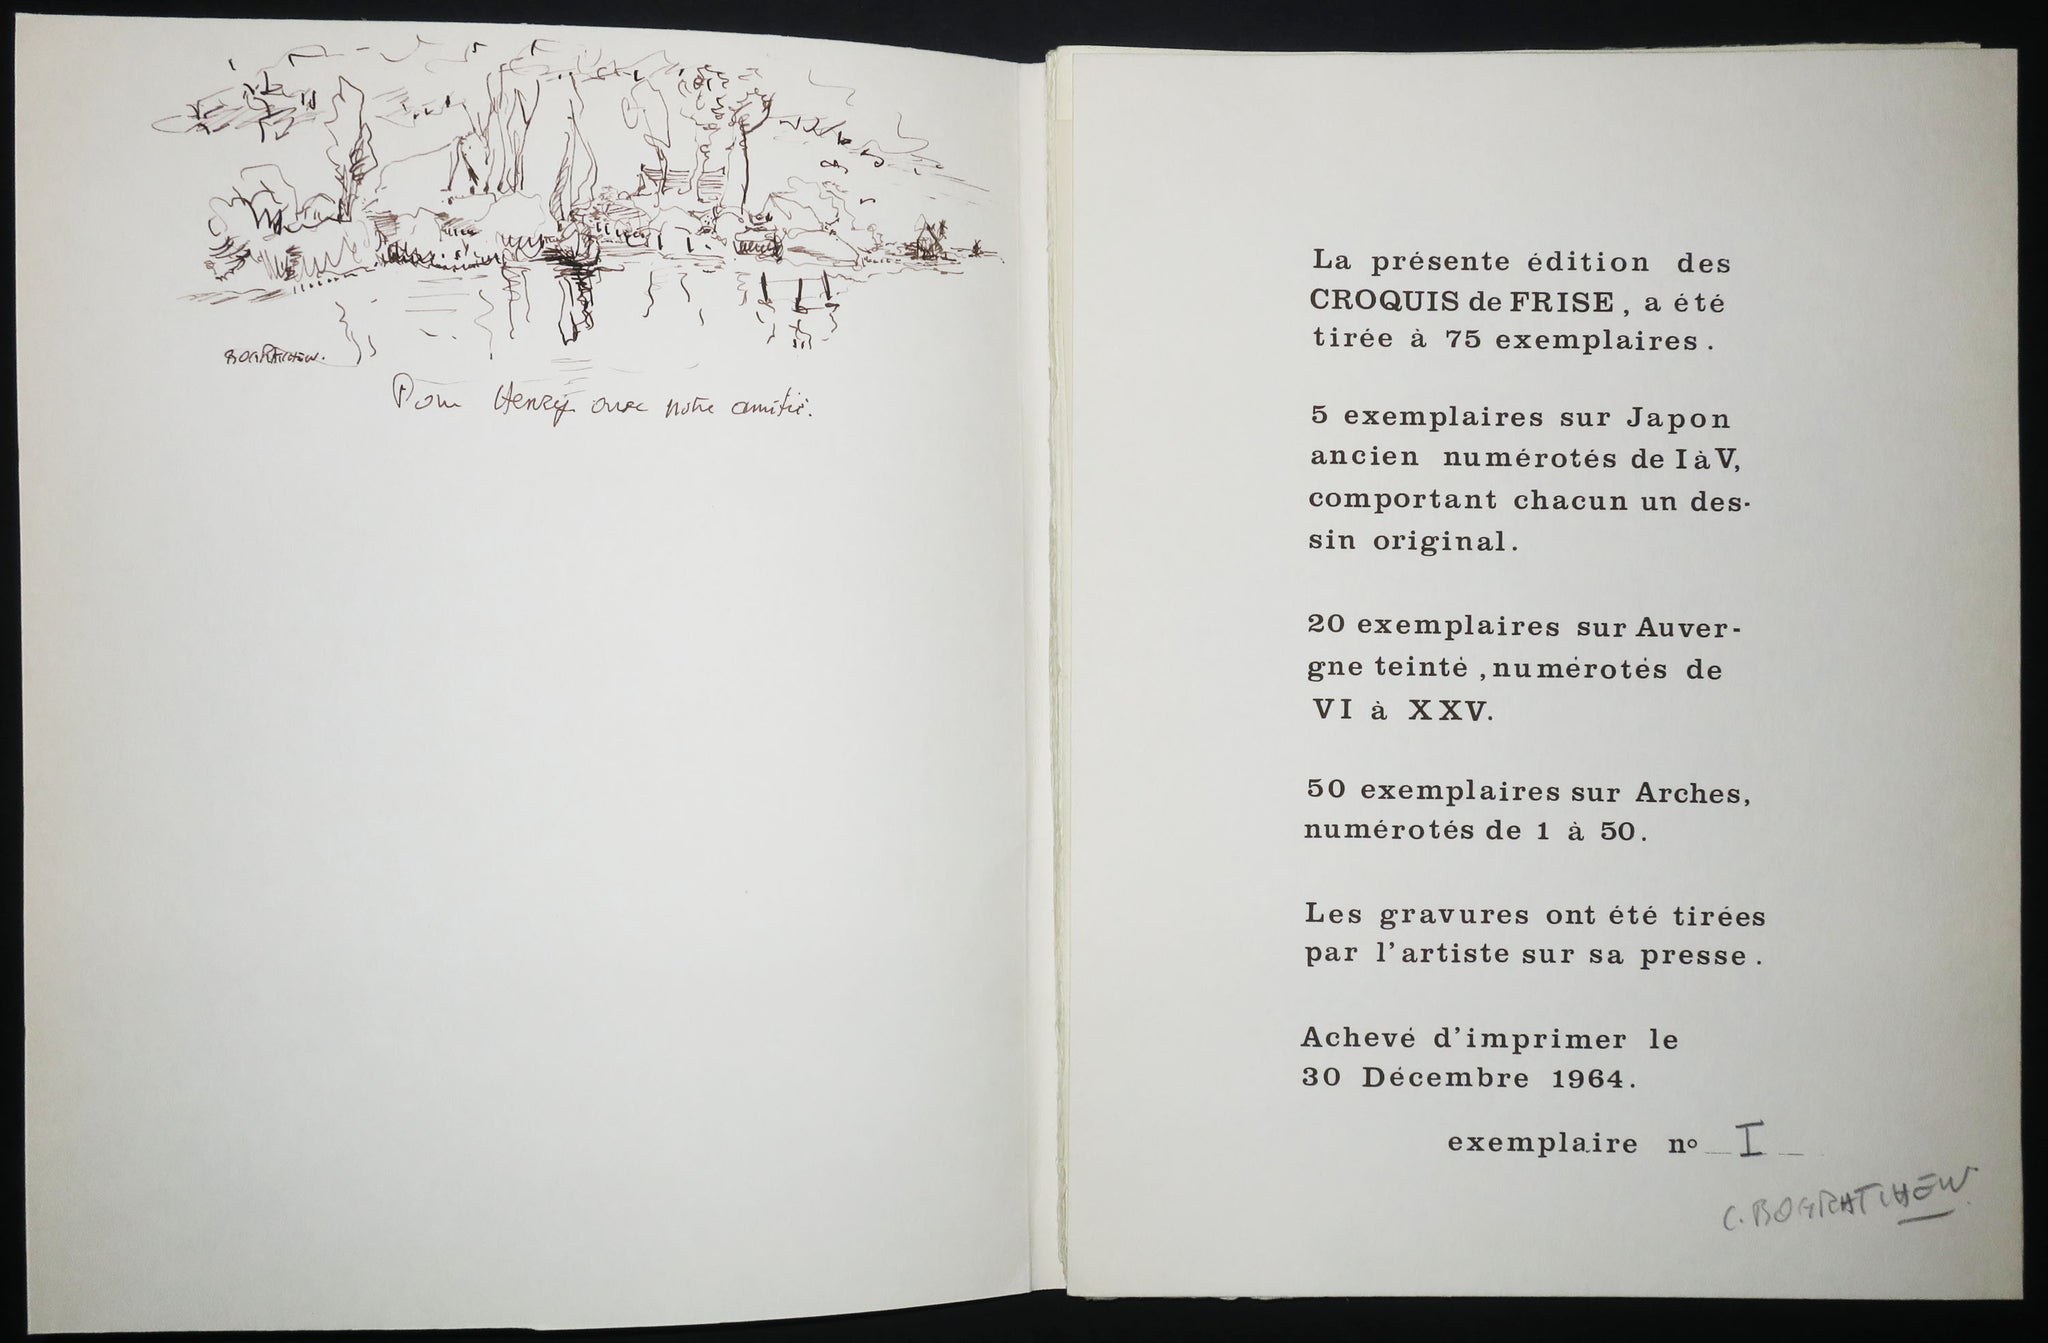 BOGRATCHEW.
Pour Henry avec notre amitié.
La présente édition des
CROQUIS de FRISE, a été
tirée à 75 exemplaires.
5 exemplaires sur Japon
ancien numérotés de I à V,
comportant chacun un des-
sin original.
20 exemplaires sur Auver-
gne teinté, numérotés de
VI à XXV.
50 exemplaires sur Arches,
numérotés de 1 à 50.
Les gravures ont été tirées
par l'artiste sur sa presse.
Achevé d'imprimer le
30 Décembre 1964.
exemplaire nº I
C. BOGRATCHEW